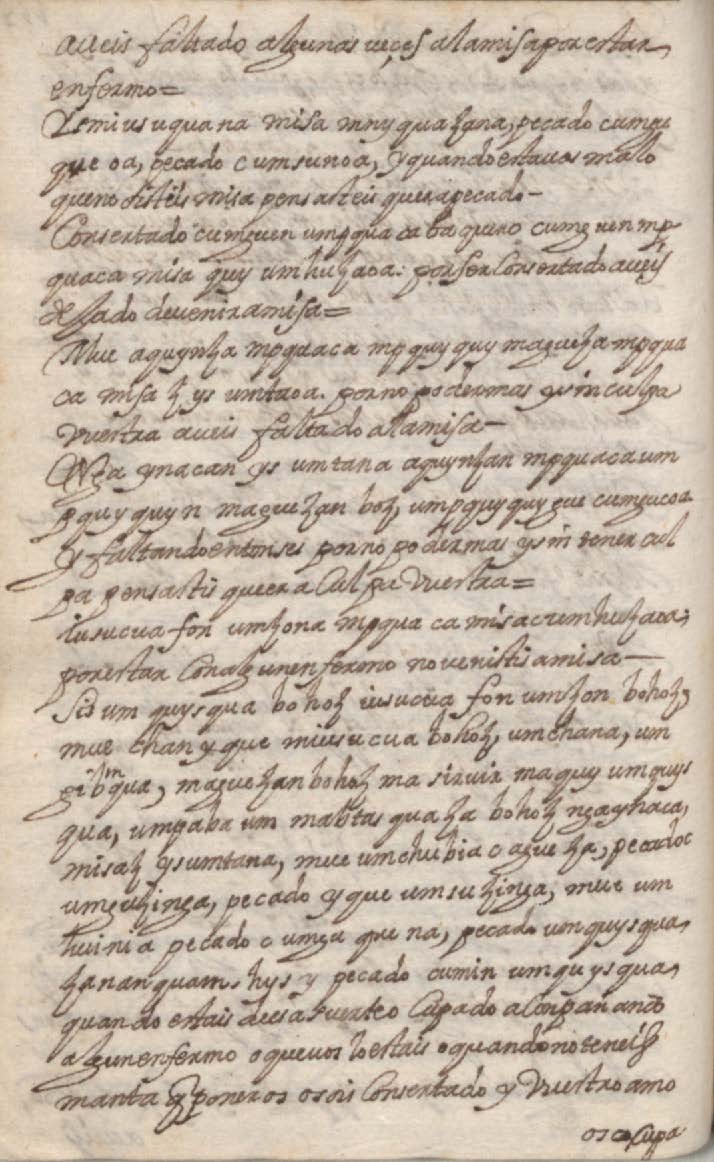 aveis faltado algunas veçes a la misa por estar
enfermo=
Ye miusuqua na misa mny qua zana, pecado cumgu
que oa, pecado cumsunoa, y quando estavos malo
que no oisteis misa pensasteis quera pecado-
Consertado cumguen umpqua ca ba quiro cumguen mp
quaca misa quy umhuzaoa: por ser Consertado aveis
desado de venir a misa=
Mue aquynza mpquaca mpquyquy magueza mpqua
ca misa z ys umtaoa. por no poder mas y sin culpa
vuestra aveis faltado a la misa-
Nga ynacan ys umtana aquynzan mpquaca um
pquyquyn maguezan boz, umpquyquy gue cumgucoa
y faltando entonses por no poder mas y sin tener cul
pa pensastis que era Culpa vuestra=
iusucua fon umzona mpqua ca misac umhuzaoa;
por estar Con algun enfermo no venistis a misa-
Sis um quysqua bohoz iusucua fon umzon bohoz,
mue chan y que miusucua bohoz, umchana, um
gibmqua, maguezan bohoz ma siruir maquy umquys
qua, umpaba um mantas quaza bohoz ngaynaca,
misaz ysumtana, mue umchubia c agueza, pecadoc
umguzinga, pecado y que umsuzinga, mue um
huinia pecado c umga que na, pecado umquysqua
zanan quams hys y pecado cumin umquysqua
quando estais desa suerte oCupado aConpañando
algun enfermo o que vos lo estais o quando no teneis
manta q poneros o sois Consertado y vuestro amo
os oCupa